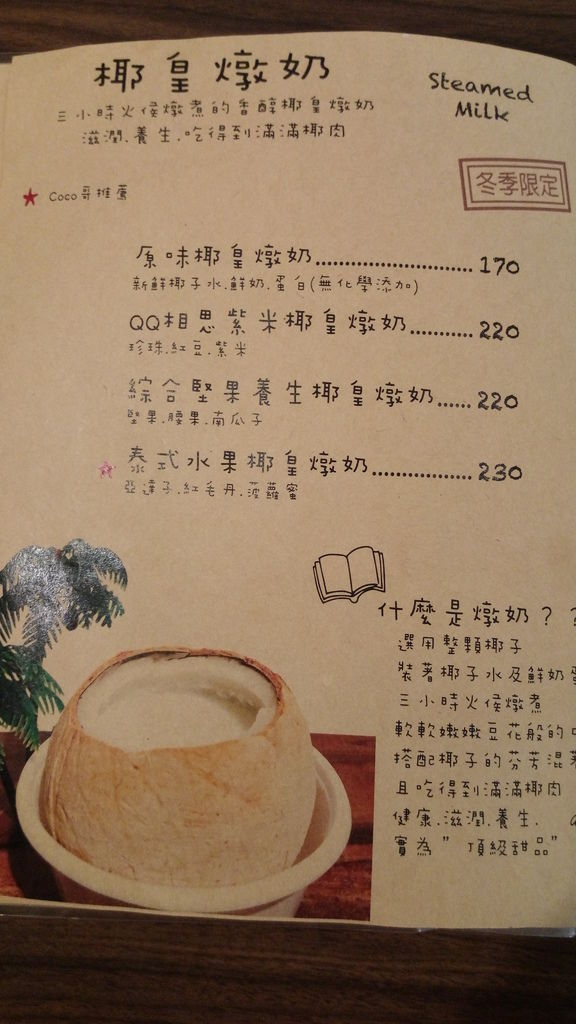 椰皇燉奶
Steamed
Milk
三小時火侯燉煮的香醇椰皇燉奶
滋潤.養生.吃得到滿滿椰肉
冬季限定
★ Coco哥推薦
原味椰皇燉奶......................... 170
新鮮椰子水.鮮奶.蛋白(無化學添加)
QQ相思紫米椰皇燉奶.......... 220
珍珠.紅豆.紫米
綜合堅果養生椰皇燉奶...... 220
堅果.腰果.南瓜子
泰式水果椰皇燉奶................ 230
亞達子.紅毛丹.菠蘿蜜
什麼是燉奶??
選用整顆椰子
裝著椰子水及鮮奶
三小時火侯燉煮
軟軟嫩嫩豆花般的
搭配椰子的芬芳混
且吃得到滿滿椰肉
健康.滋潤.養生.
實為"頂級甜品"